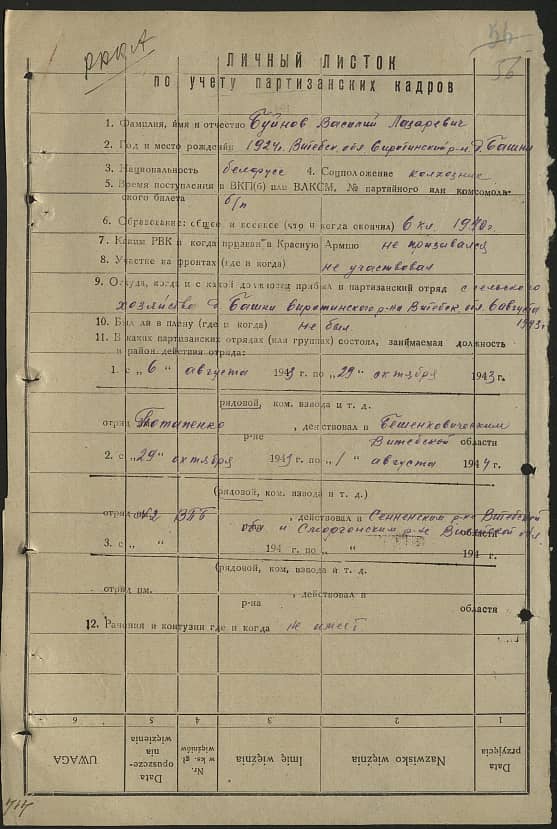 РККА
54
56
ЛИЧНЫЙ ЛИСТОК
по учету партизанских кадров
1. Фамилия, имя и отчество Буйнов Василий Лазаревич
2. Год и место рождения 1924г. Витебск. обл Сиротинский р-н д. Башки
3. Национальность белорусс 4. Соцположение колхозник
5. Время поступления в ВКП(б) или ВЛКСМ, № партийного или комсомоль-
ского билета б/п
6. Образование: общее и военное (что и когда окончил) 6 кл. 1940г.
7. Каким РВК и когда призван в Красную Армию не призывался
8. Участие на фронтах (где и когда) не участвовал
9. Откуда, когда и с какой должности прибыл в партизанский отряд с сельского
хозяйства д. Башки Сиротинского р-на Витебск. обл. 6 августа
1943г
10. Был ли в плену (где и когда) не был
11. В каких партизанских отрядах (или группах) состоял, занимаемая должность
и район действия отряда:
1. с „6" августа 1943 г. по „29" октября 1943 г.
рядовой, ком. взвода и т. д.
отряд Потапенко, действовал в Бешенковическим
р-не Витебской области
2. с „29" октября 1943 г. по „1" августа 1944 г.
(рядовой, ком. взвода и т. д.)
отряд №2 ВПБ, действовал в Сенненским р-не Витебской
обл и Сморгонским р-не обл.
области
3. с „ " 194 г. по „ " 194 г.
(рядовой, ком, взвода и т. д.
отряд им. , действовал в
р-на области
12. Ранения и контузии где и когда не имеет
6 5 4 3 2 1
UWAGA
Data opuszcze- nia więzienia
Nr. w ks. gł. więźniów
Imię więźnia
Nazwisko więźnia
Data przyjęcia